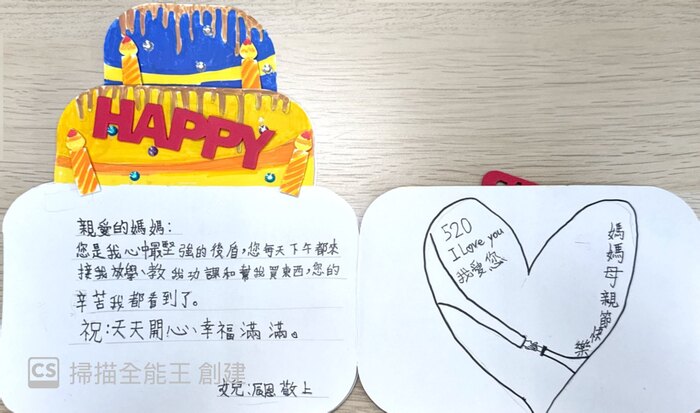 HAPPY
親愛的媽媽:
您是我心中最堅強的後盾,您每天下午都來
接我放學、教我功課和幫我買東西,您的
辛苦我都看到了。
祝:天天開心、幸福滿滿。
敬上
CS 掃描全能王 創建
520
I Love you
我愛您
媽媽母親節快樂